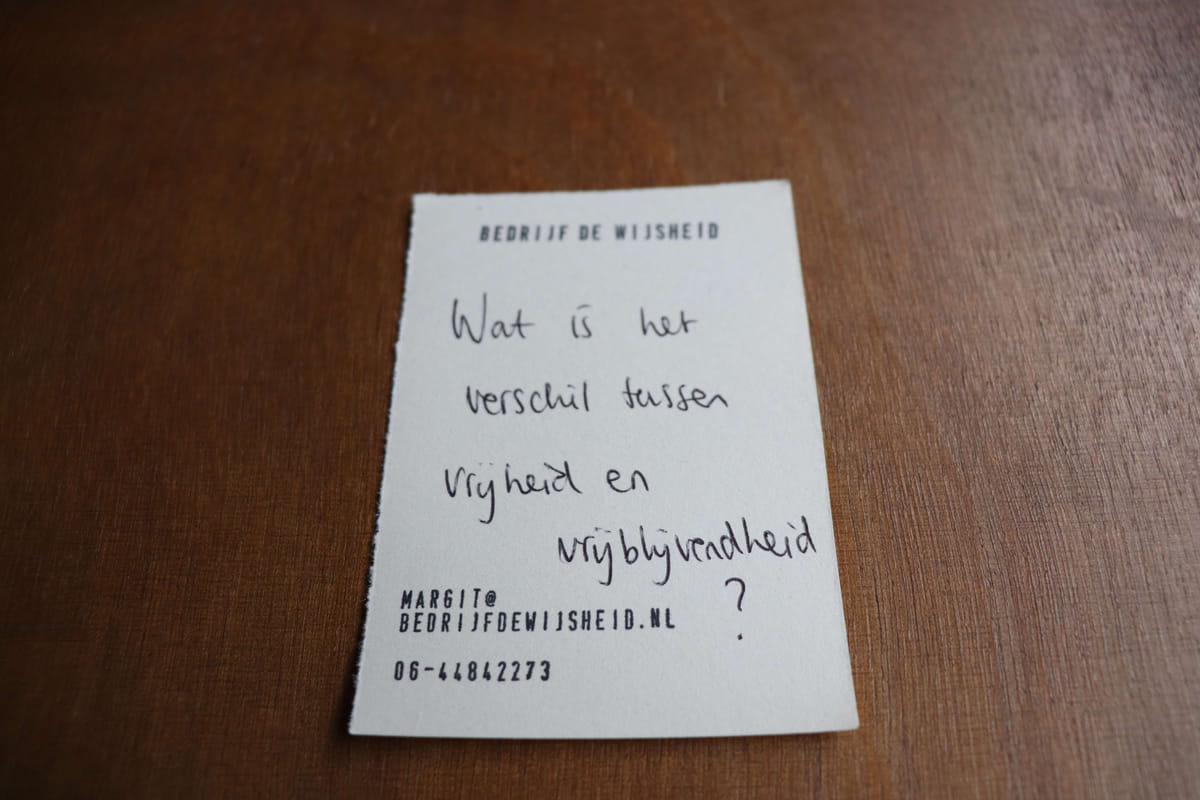 BEDRIJF DE WIJSHEID
Wat is het
verschil tussen
vrijheid en
vrijblijvendheid
?
MARGIT@
BEDRIJFDEWIJSHEID.NL
06-44842273